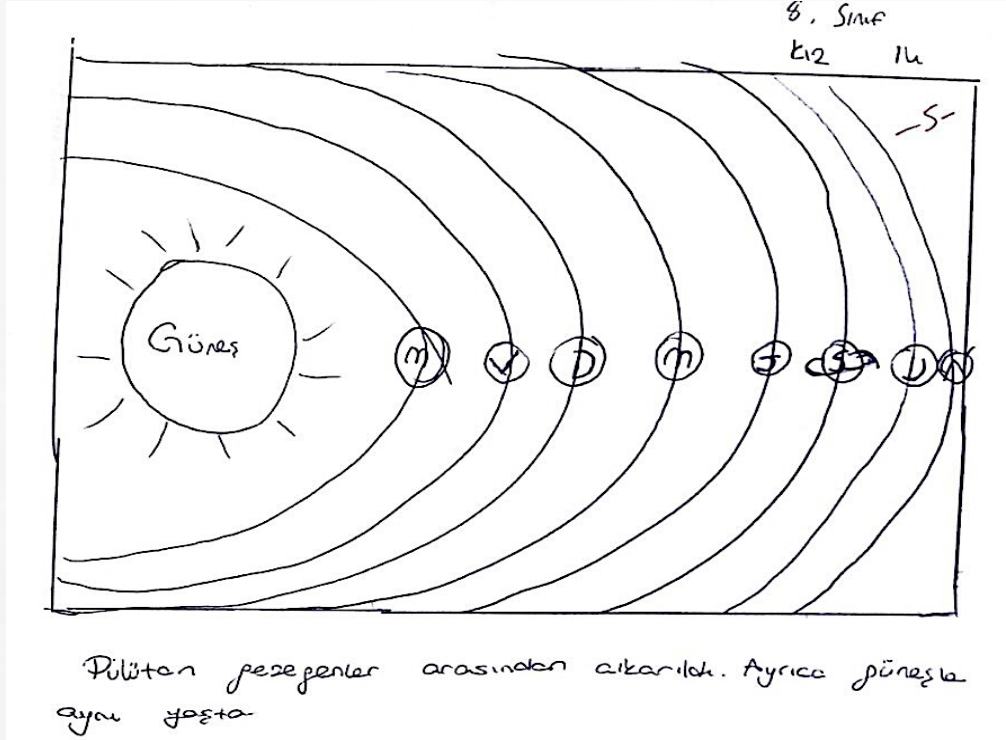 8. Sınıf
kız 14
-5-
Güneş
m V D m J S U N
Pülüton gezegenler arasından çıkarıldı. Ayrıca güneşle
aynı yaşta